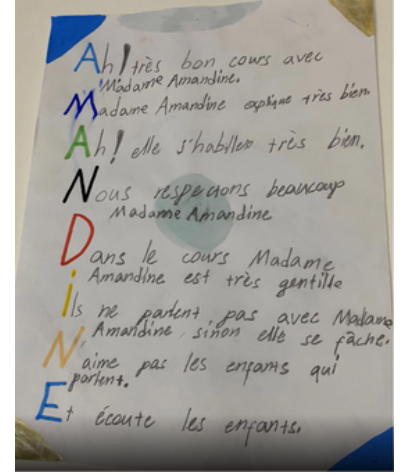 Ah! très bon cours avec
Madame Amandine.
Madame Amandine explique très bien.
Ah! elle s'habiller très bien.
Nous respectons beaucoup
Madame Amandine
Dans le cours Madame
Amandine est très gentille
ils ne parlent pas avec Madame
Amandine, sinon elle se fâche.
N'aime pas les enfants qui
parlent.
Et écoute les enfants.